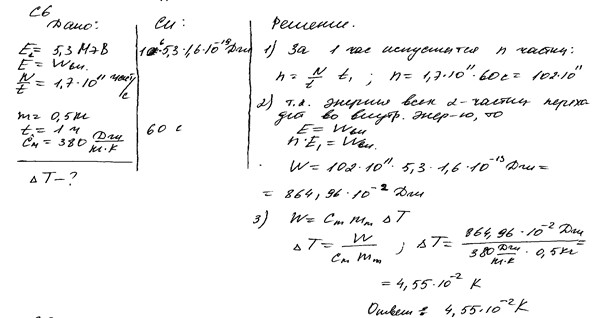 С6
Дано:
E₁ = 5,3 МэВ
E = Wвн.
N/t = 1,7·10¹¹ част/с
m = 0,5 кг
t₁ = 1 ч
Cм = 380 Дж/кг·К
ΔT - ?
Си:
10⁶·5,3·1,6·10⁻¹⁹ Дж
60 с
Решение.
1) За 1 час испустится n частиц:
n = N/t t₁ ; n = 1,7·10¹¹·60 с = 102·10¹¹
2) т.к. энергия всех α-частиц перехо
дят во внутр. энер-ю, то
E = Wвн
n·E₁ = Wвн.
W = 102·10¹¹ · 5,3 · 1,6·10⁻¹³ Дж =
= 864,96·10⁻² Дж
3) W = Cм mм ΔT
ΔT = W/Cм mм ; ΔT = 864,96·10⁻² Дж / 380 Дж/кг·К · 0,5 кг =
= 4,55·10⁻² К
Ответ: 4,55·10⁻² К